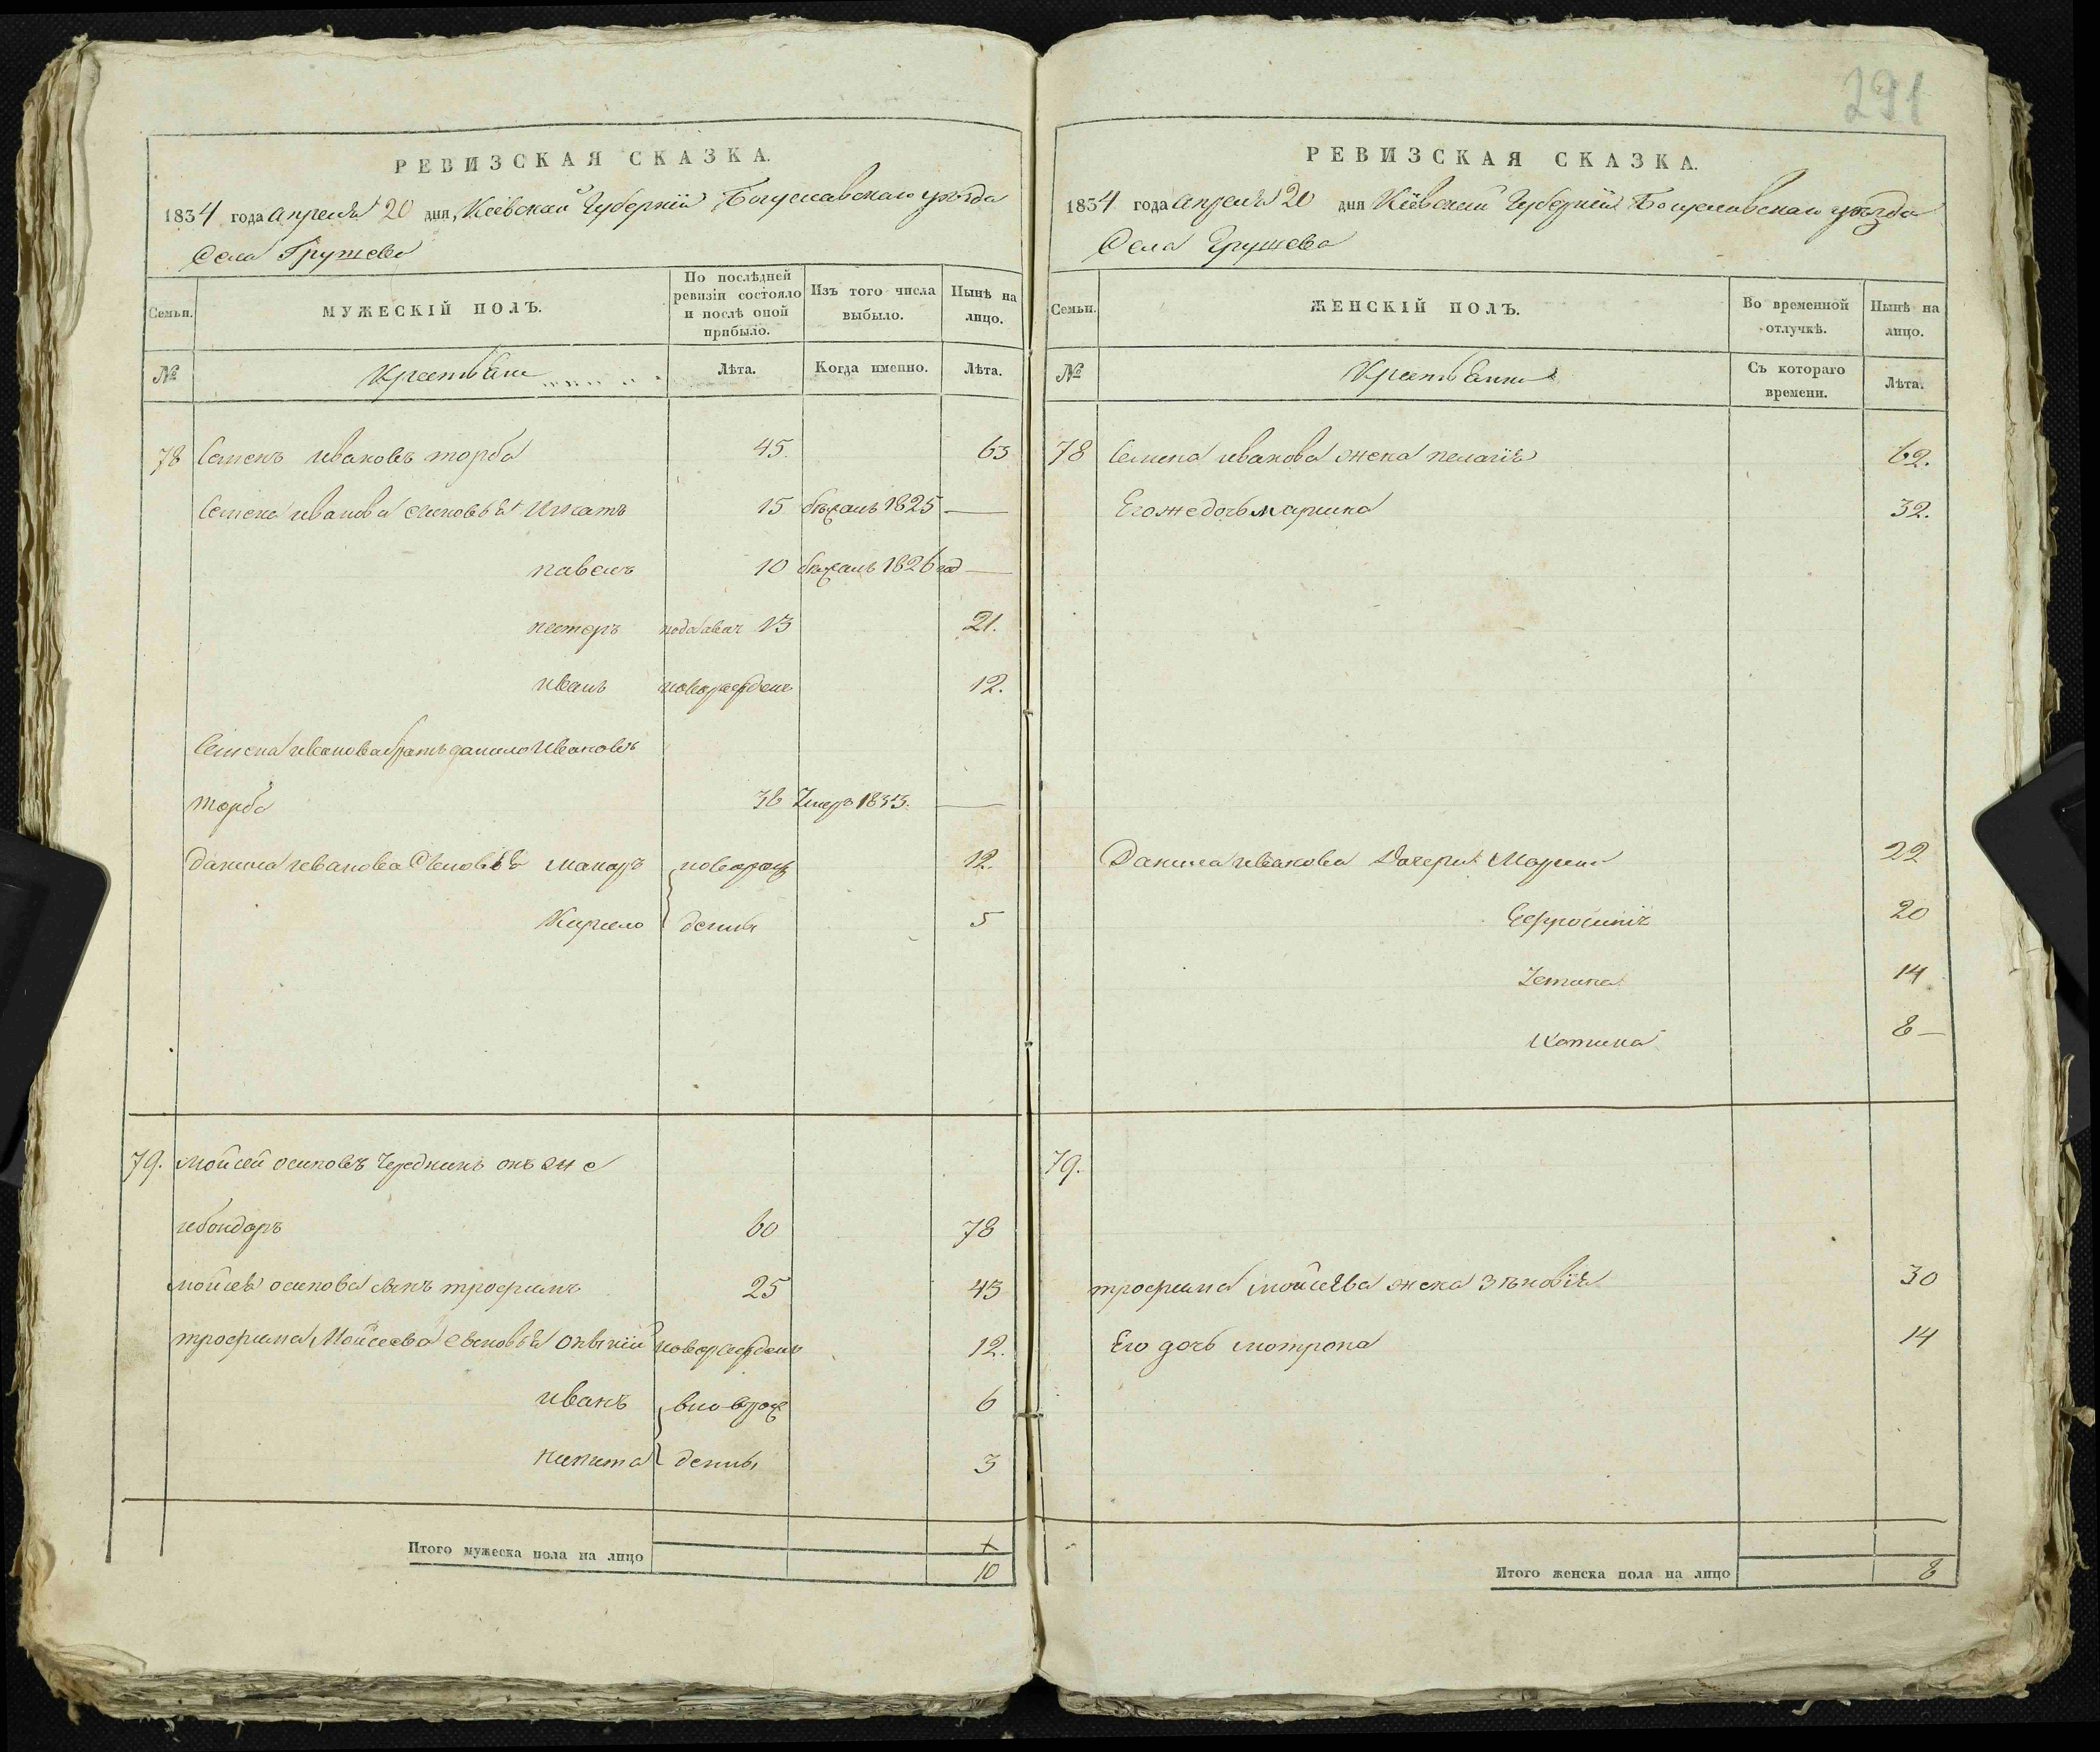 291
РЕВИЗСКАЯ СКАЗКА.
1834 года Апреля 20 дня, Кіевской Губерніи Богуславскаго уѣзда
Села Грушева
Семьи.
МУЖЕСКІЙ ПОЛЪ.
По послѣдней ревизіи состояло и послѣ оной прибыло.
Изъ того числа выбыло.
Нынѣ на лицо.
№
Крестьяне
Лѣта.
Когда именно.
Лѣта.
78 Семенъ ивановъ торба 45. 63
Семена иванова сыновья Игнатъ 15 бѣжалъ 1825 —
павелъ 10 бѣжалъ 1826 год —
нестеръ 13 21.
иванъ новорожденъ 12.
Семена иванова братъ данило ивановъ
торба 36 Умеръ 1833. —
данила иванова Сыновья макаръ новорож 12.
Кирило денны 5
79. мойсей осиповъ Чередникъ онъ же
ибондаръ 60 78
мойсея осипова сынъ трофимъ 25 43
трофима Мойсеева сыновья новорожденъ 12.
иванъ вновьрож 6
никита денны 3
Итого мужеска пола на лицо
10
РЕВИЗСКАЯ СКАЗКА.
1834 года Апреля 20 дня Кіевской Губерніи Богуславскаго уѣзда
Села Грушева
Семьи.
ЖЕНСКІЙ ПОЛЪ.
Во временной отлучкѣ.
Нынѣ на лицо.
№
Крестьянки
Съ котораго времени.
Лѣта.
78 Семена иванова жена пелагія 62.
Егоже дочь марина 32.
Данила иванова Дочери 22
Ефросинія 20
14
8 —
79.
трофима мойсѣева жена зѣновія 30
Его дочь мотрона 14
Итого женска пола на лицо 8